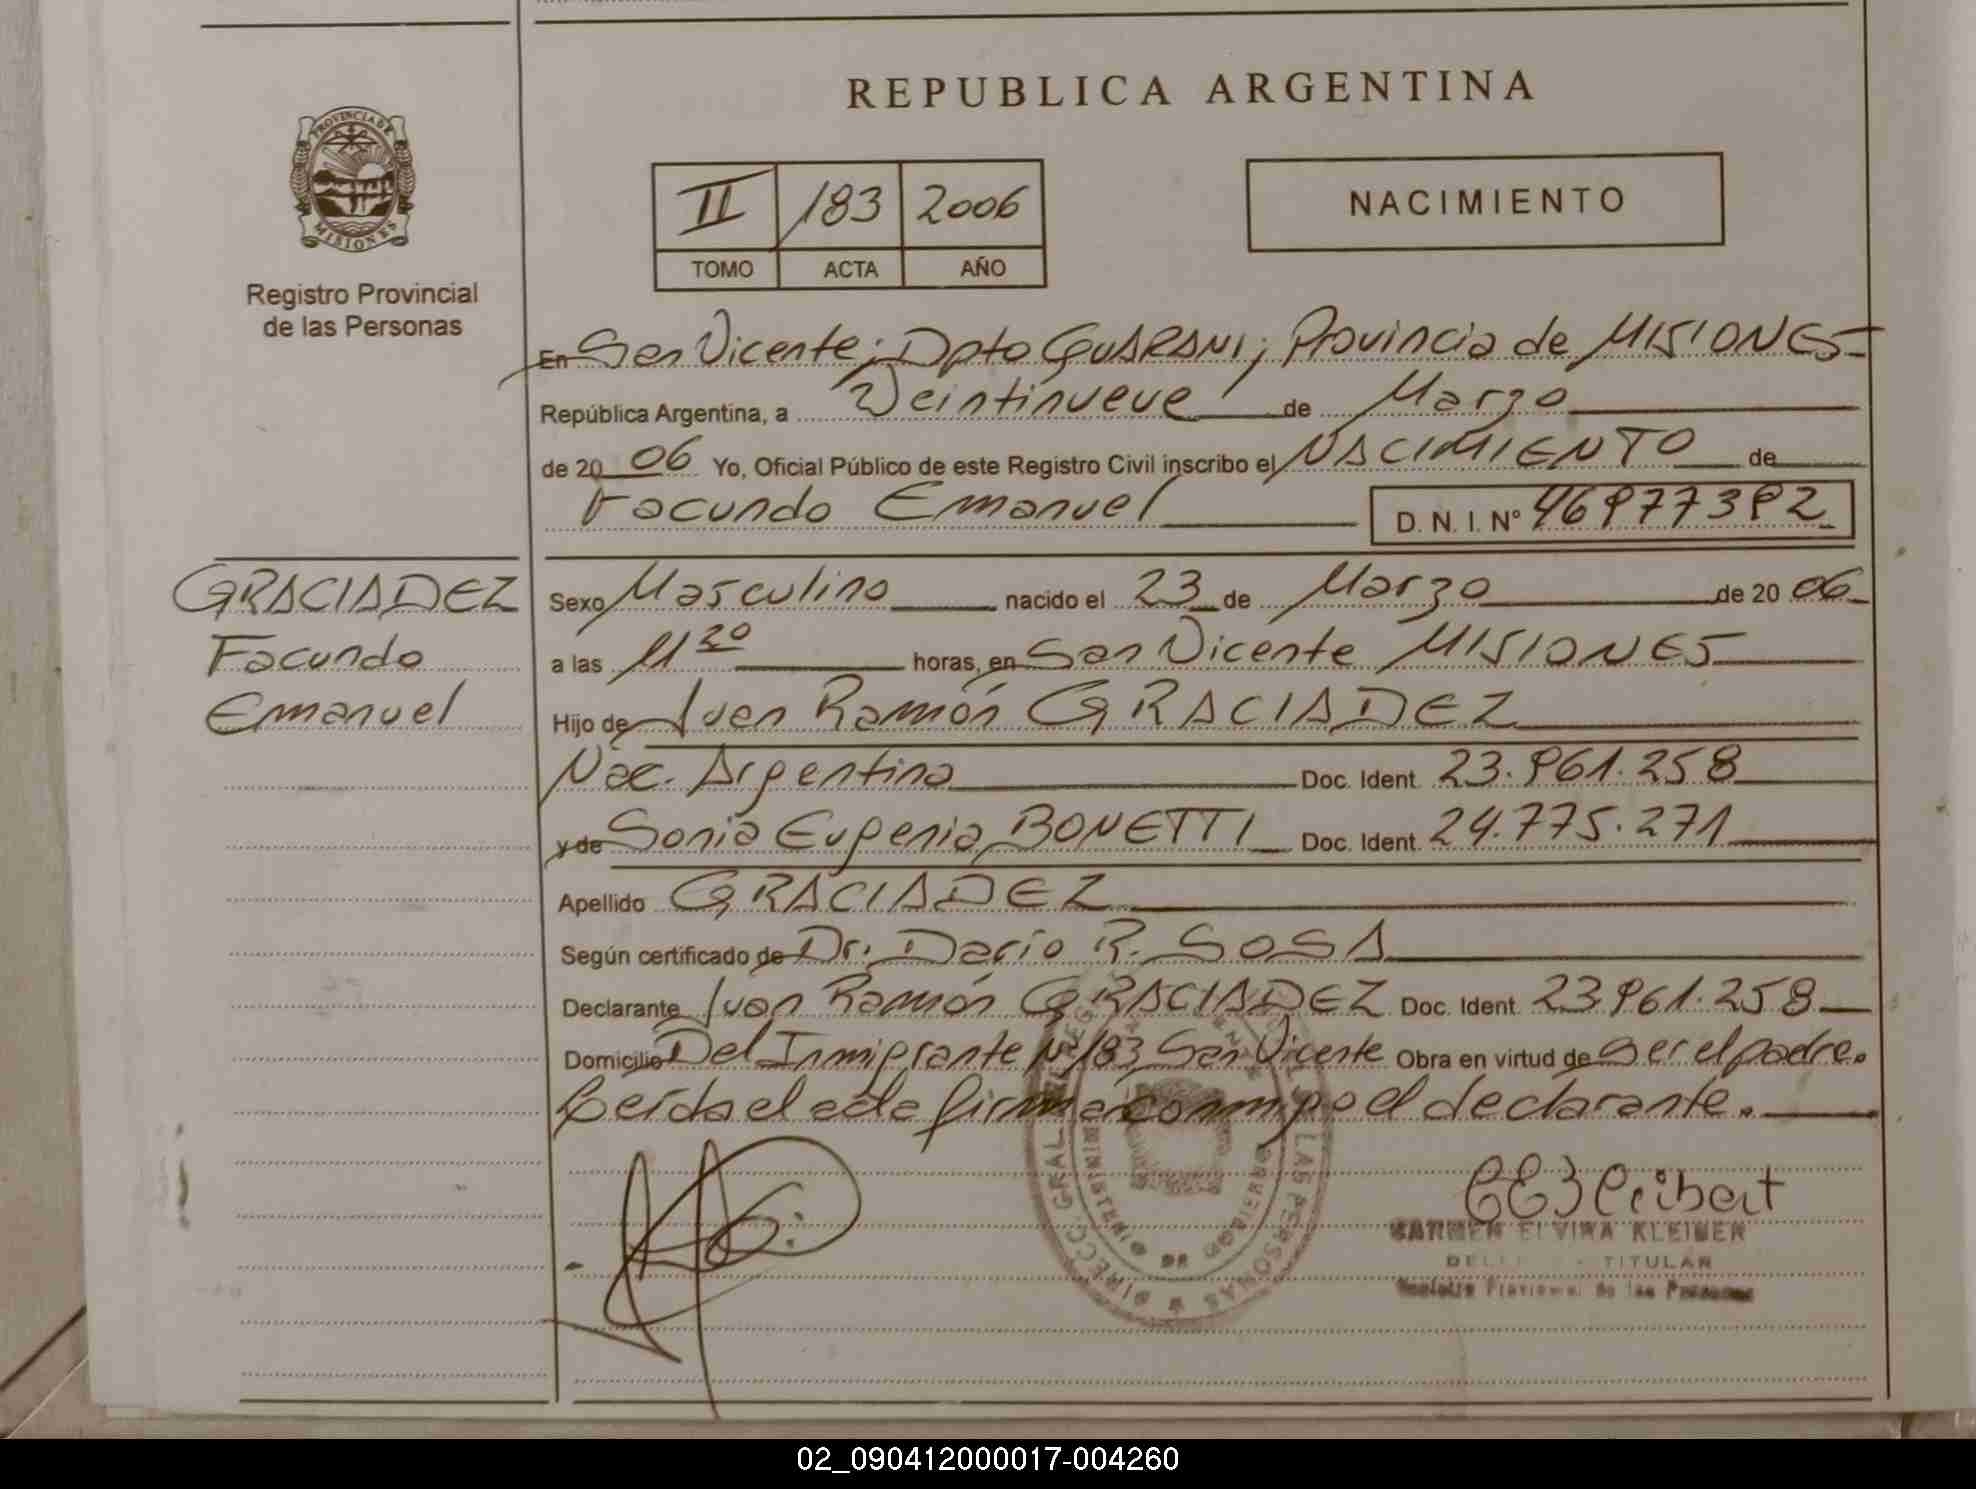 REPUBLICA ARGENTINA
PROVINCIA DE
MISIONES
Registro Provincial
de las Personas
II 183 2006
TOMO ACTA AÑO
NACIMIENTO
En San Vicente; Dpto GUARANI; Provincia de MISIONES
República Argentina, a Veintinueve de Marzo
de 20 06 Yo, Oficial Público de este Registro Civil inscribo el NACIMIENTO de
Facundo Emanuel D. N. I. Nº 46977392
GRACIADEZ
Facundo
Emanuel
Sexo Masculino nacido el 23 de Marzo de 20 06
a las 11 30 horas, en San Vicente MISIONES
Hijo de Juan Ramón GRACIADEZ
Nac. Argentina Doc. Ident. 23.961.258
y de Sonia Eugenia BONETTI Doc. Ident. 24.775.271
Apellido GRACIADEZ
Según certificado de Dr. Dario R. SOSA
Declarante Juan Ramón GRACIADEZ Doc. Ident. 23.961.258
Domicilio Del Inmigrante Nº 183 San Vicente Obra en virtud de ser el padre.
Leída el acta firma conmigo el declarante.
DIRECC. GRAL. LAS PERSONAS
CARMEN ELVIRA KLEINER
TITULAR